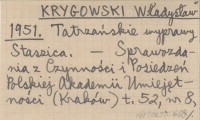 KRYGOWSKI Władysław
1951. Tatrzańskie wyprawy
Staszica. — Sprawozda-
nia z Czynności i Posiedzeń
Polskiej Akademii Umiejęt-
ności (Kraków) t. 52, nr 8,